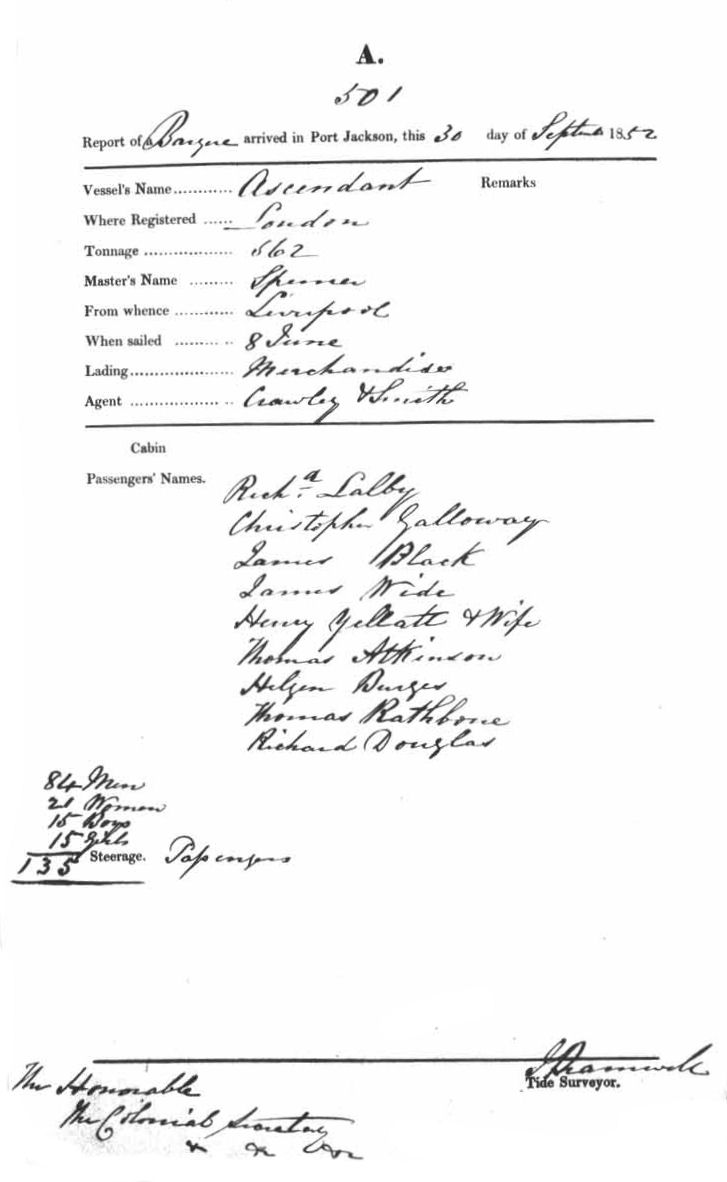 A.
501
Report of a Barque arrived in Port Jackson, this 30 day of Septembr 1852
Vessel's Name............ Ascendant Remarks
Where Registered ...... London
Tonnage .................. 562
Master's Name ......... Spencer
From whence ............ Liverpool
When sailed ......... .. 8 June
Lading..................... Merchandise
Agent .................. .. Crawley & Smith
Cabin
Passengers' Names.
Richd. Lalby
Christopher Galloway
James Black
James Wide
Henry Yellatt & Wife
Thomas Atkinson
Helgen Burges
Thomas Rathbone
Richard Douglas
84 Men
21 Women
15 Boys
15 Girls
135 Steerage. Passengers
Tide Surveyor.
The Honorable
The Colonial Secretary
& &c &c